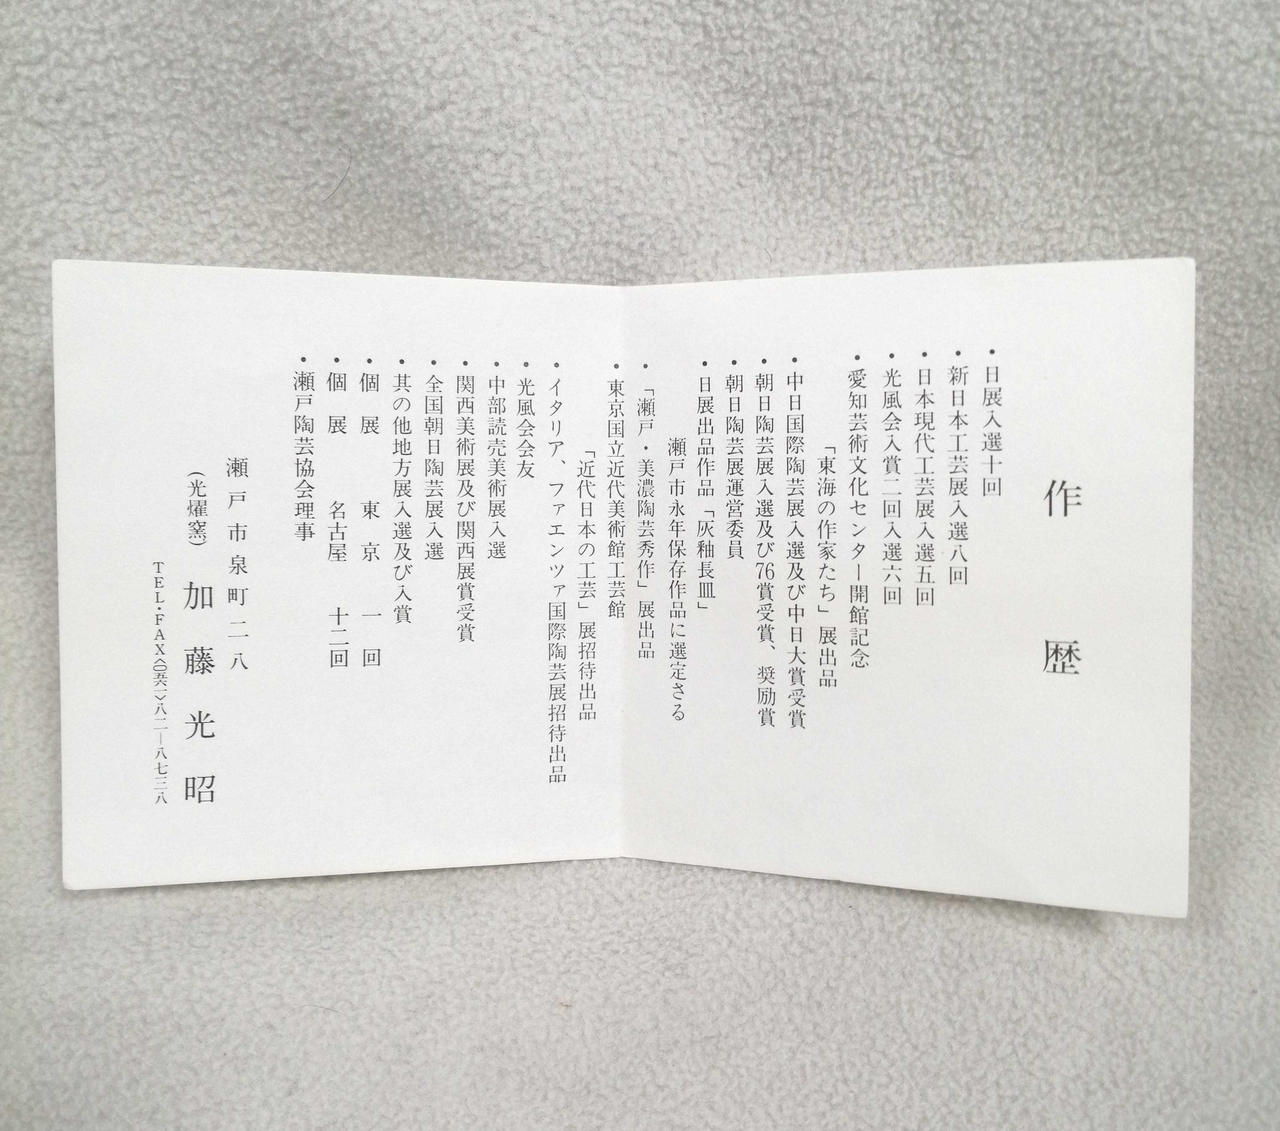 作歴
・日展入選十回
・新日本工芸展入選八回
・日本現代工芸展入選五回
・光風会入賞二回入選六回
・愛知芸術文化センター開館記念
「東海の作家たち」展出品
・中日国際陶芸展入選及び中日大賞受賞
・朝日陶芸展入選及び76賞受賞、奨励賞
・朝日陶芸展運営委員
・日展出品作品「灰釉長皿」
瀬戸市永年保存作品に選定さる
・「瀬戸・美濃陶芸秀作」展出品
・東京国立近代美術館工芸館
「近代日本の工芸」展招待出品
・イタリア、ファエンツァ国際陶芸展招待出品
・光風会会友
・中部読売美術展入選
・関西美術展及び関西展賞受賞
・全国朝日陶芸展入選
・其の他地方展入選及び入賞
・個展 東京 一回
・個展 名古屋 十二回
・瀬戸陶芸協会理事
瀬戸市泉町二八
(光燿窯) 加藤光昭
TEL・FAX〈〇五六一〉八二―八七三八